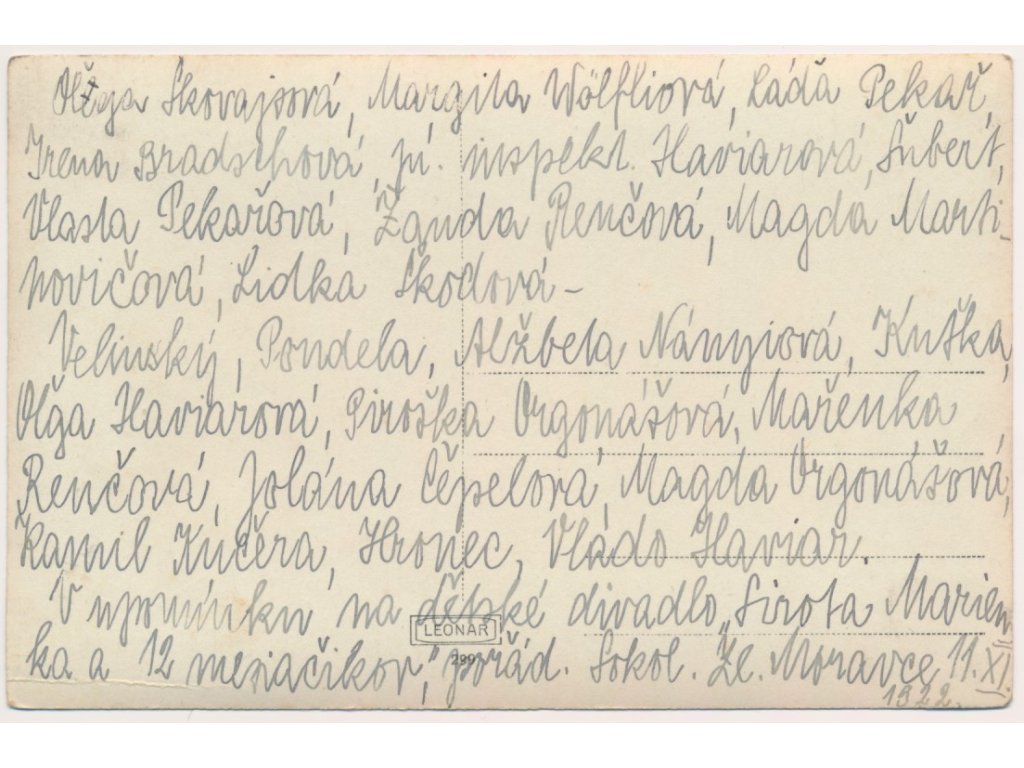 Olga Škovajsová, Margita Wölfliová, Láďa Pekař,
Irena Bradschová, pí. inspekt. Haviarová, Šubert,
Vlasta Pekařová, Žanda Renčová, Magda Marti-
novičová, Lidka Škodová -
Velinský, Pondela, Alžbeta Nányiová, Kuťka,
Oľga Haviarová, Piroška Orgonášová, Mařenka
Renčová, Jolána Čepelová, Magda Orgonášová,
Kamil Kučera, Hronec, Vládo Haviar.
V upomínku na dětské divadlo „Sirota Marien-
ka a 12 mesiačikov", pořád. Sokol. Zl. Moravce 11.XI.
1922.
LEONAR
299